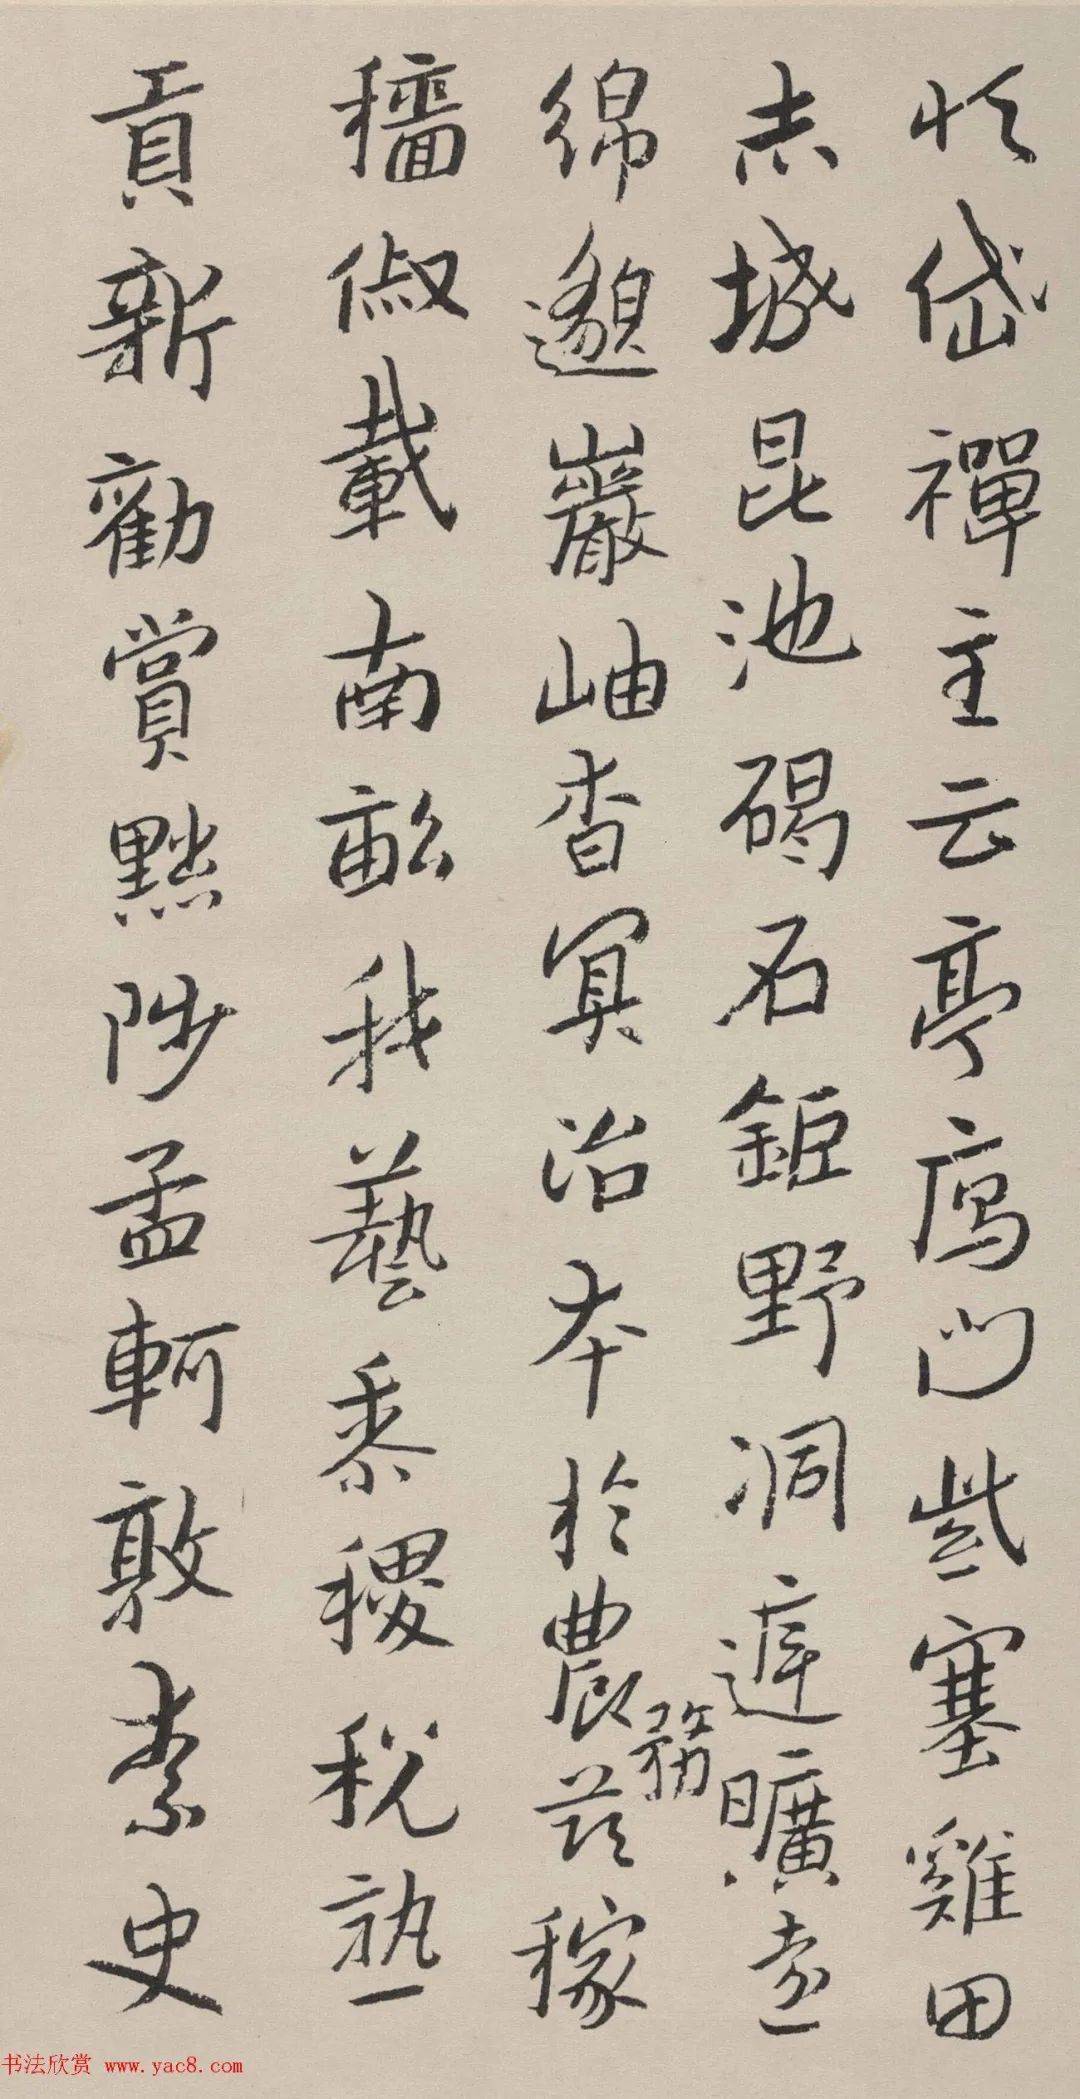 恒岱禪主云亭鴈門紫塞雞田
赤城昆池碣石鉅野洞庭曠遠
綿邈巖岫杳冥治本於農務茲稼
穡俶載南畝我藝黍稷稅熟
貢新勸賞黜陟孟軻敦素史
书法欣赏 www.yac8.com